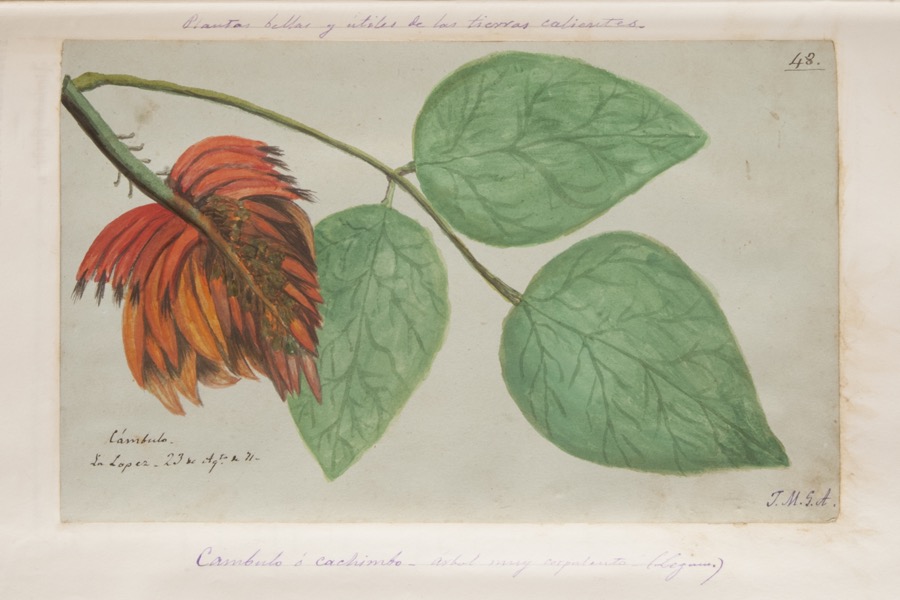 Plantas bellas y utiles de las tierras calientes.
48.
Cámbulo.
La Lopez - 23 de Agto. de 71-
J. M. G. A.
Cambulo ó cachimbo - árbol muy corpulento -